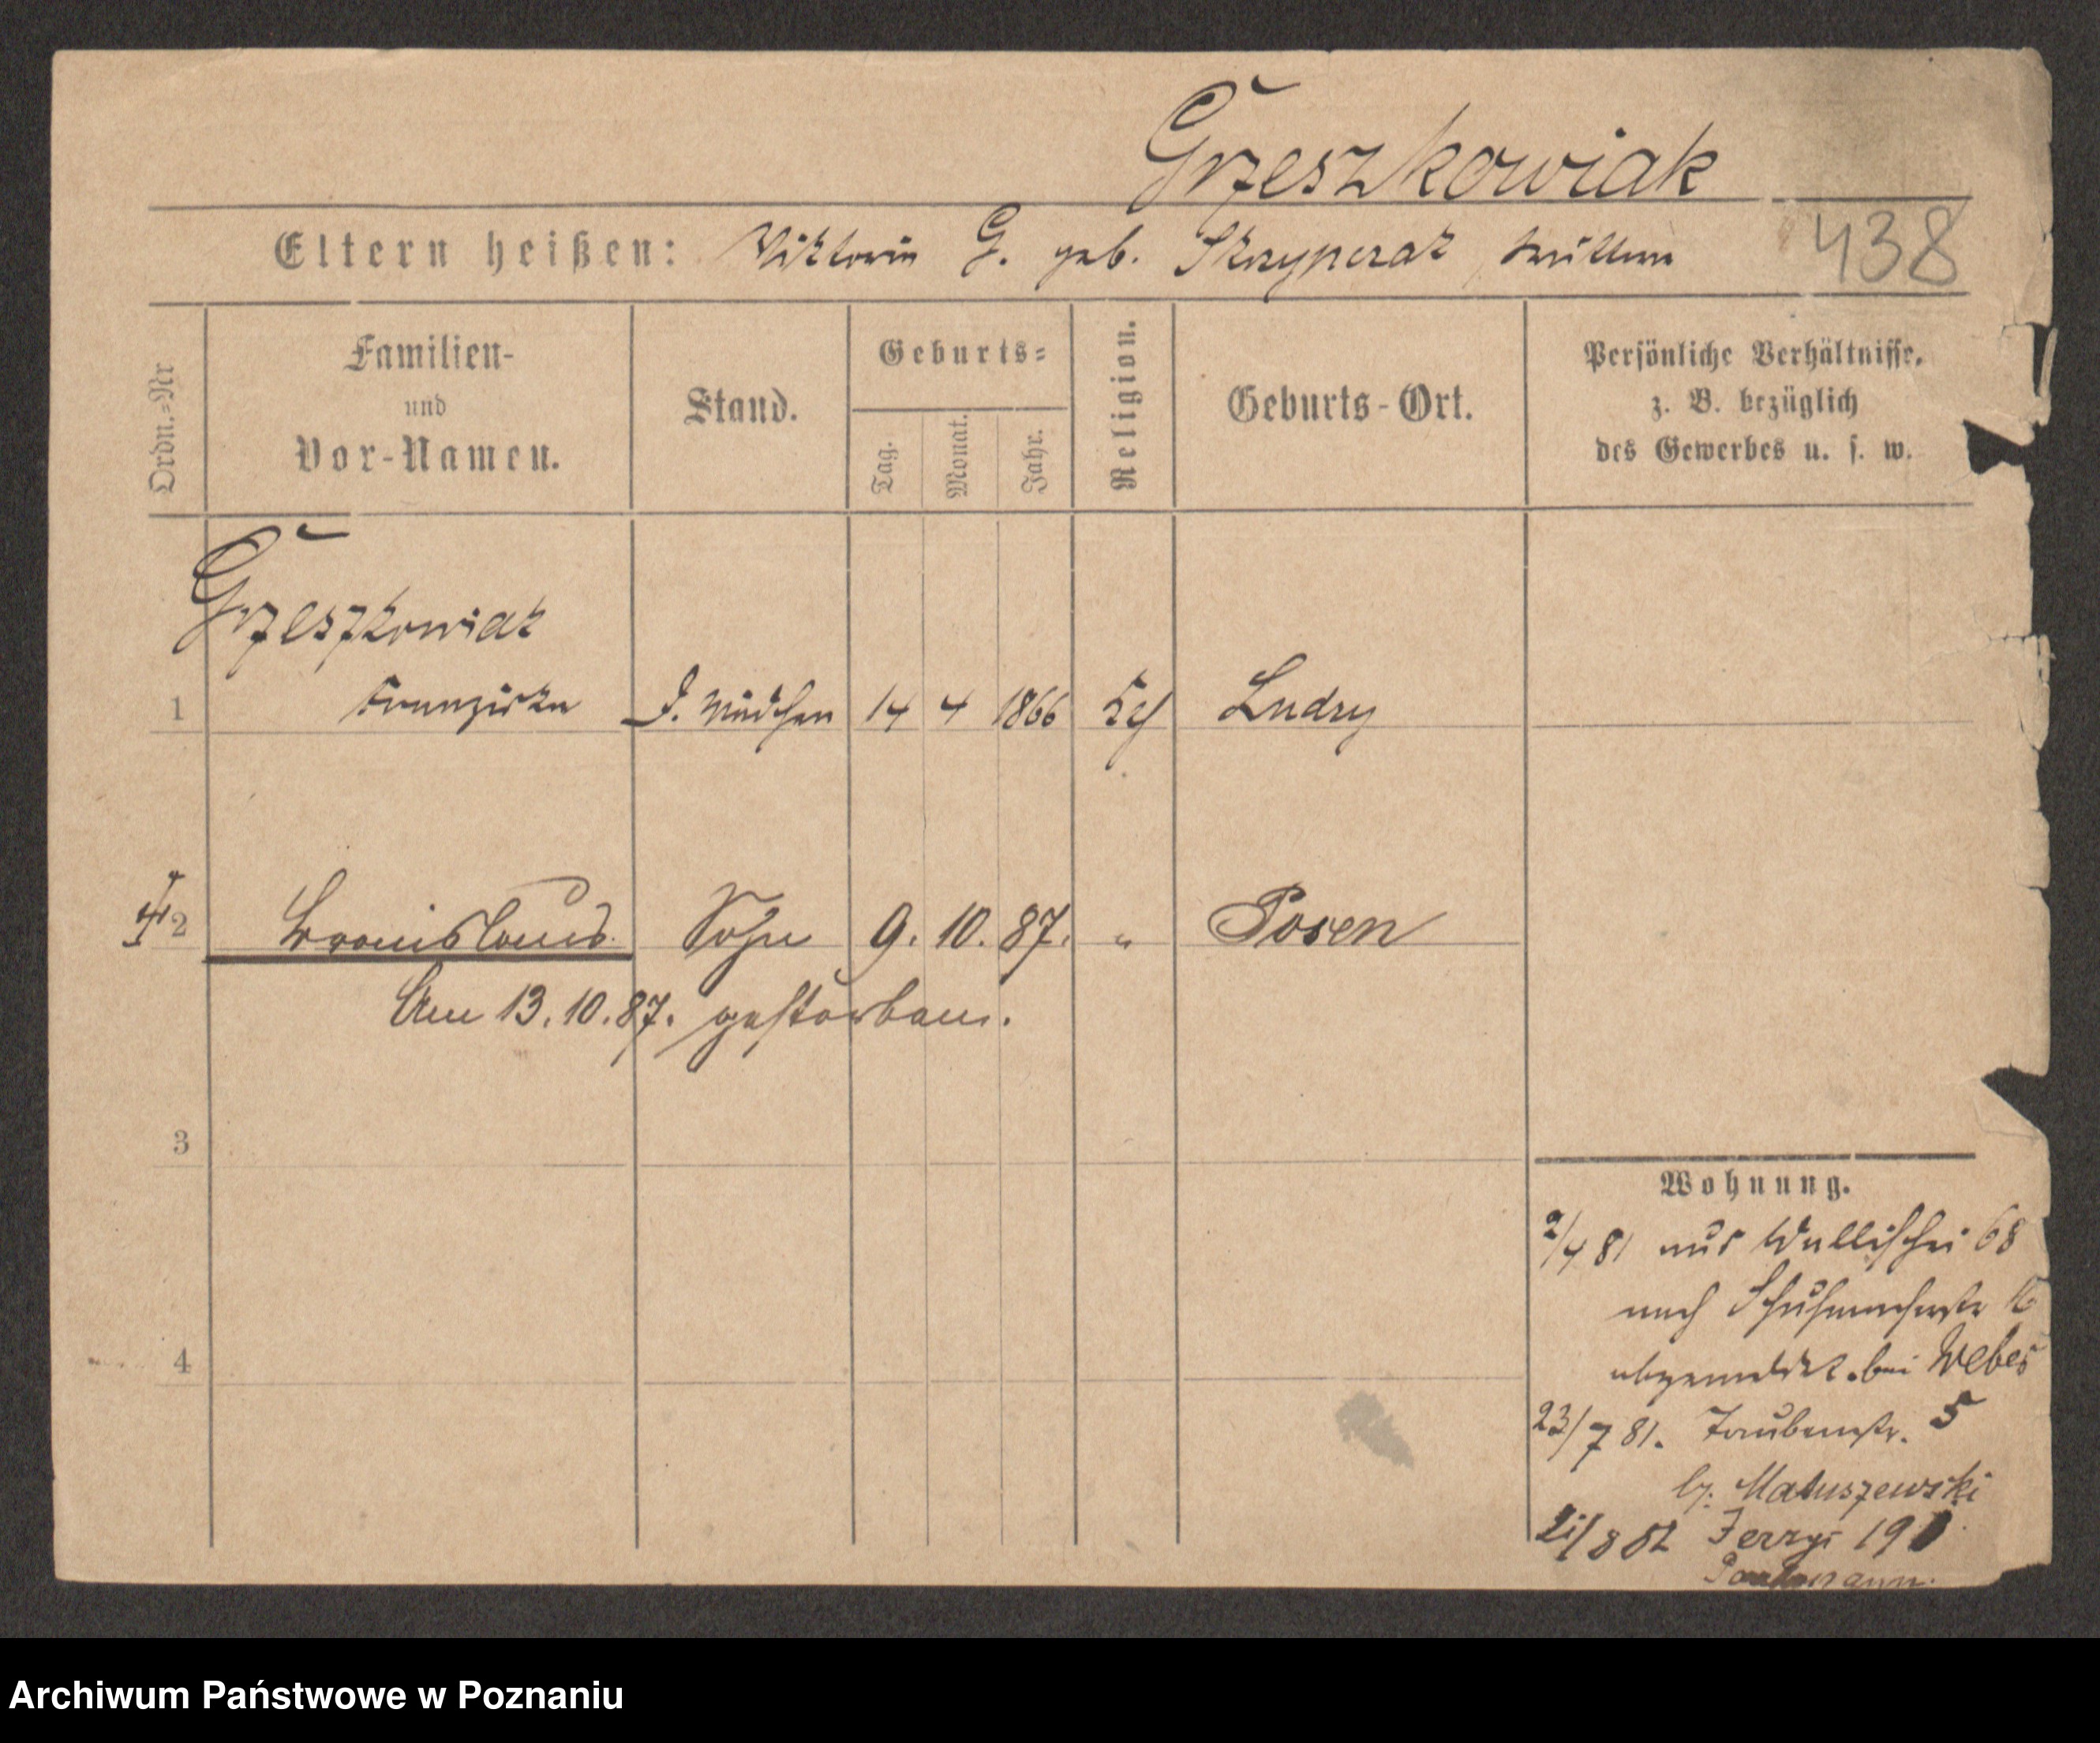 Grzeszkowiak
Eltern heißen: Viktoria G. geb. Skrzypczak, Mutter
438
Ordn.=Nr
Familien-
und
Vor-Namen.
Stand.
Geburts=
Tag.
Monat.
Jahr.
Religion.
Geburts-Ort.
Persönliche Verhältnisse,
z. B. bezüglich
des Gewerbes u. s. w.
Grzeszkowiak
1 Franziska D. Mädchen 14 4 1866 Ludzy
2 Bronislaus Sohn 9. 10. 87. " Posen
Am 13.10.87. gestorben.
3
4
Wohnung.
2/4 81 aus Wallischei 68
nach Schuhmacherstr 16
abgemeldet bei Weber
23/7 81. Taubenstr. 5
bei Matuszewski
21/8 82 Jerzyi 19
Archiwum Państwowe w Poznaniu